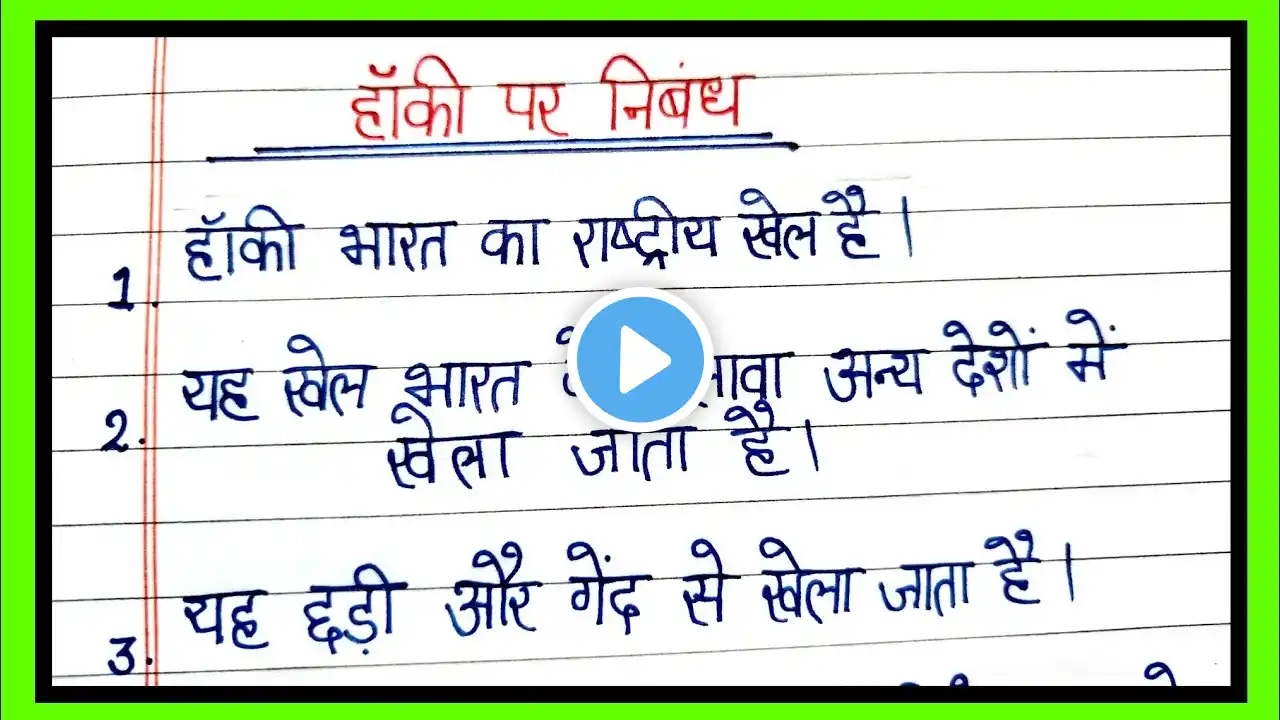 हॉकी पर निबंध
1. हॉकी भारत का राष्ट्रीय खेल है।
2. यह खेल भारत अन्य देशों में
खेला जाता है।
3. यह छड़ी और गेंद से खेला जाता है।